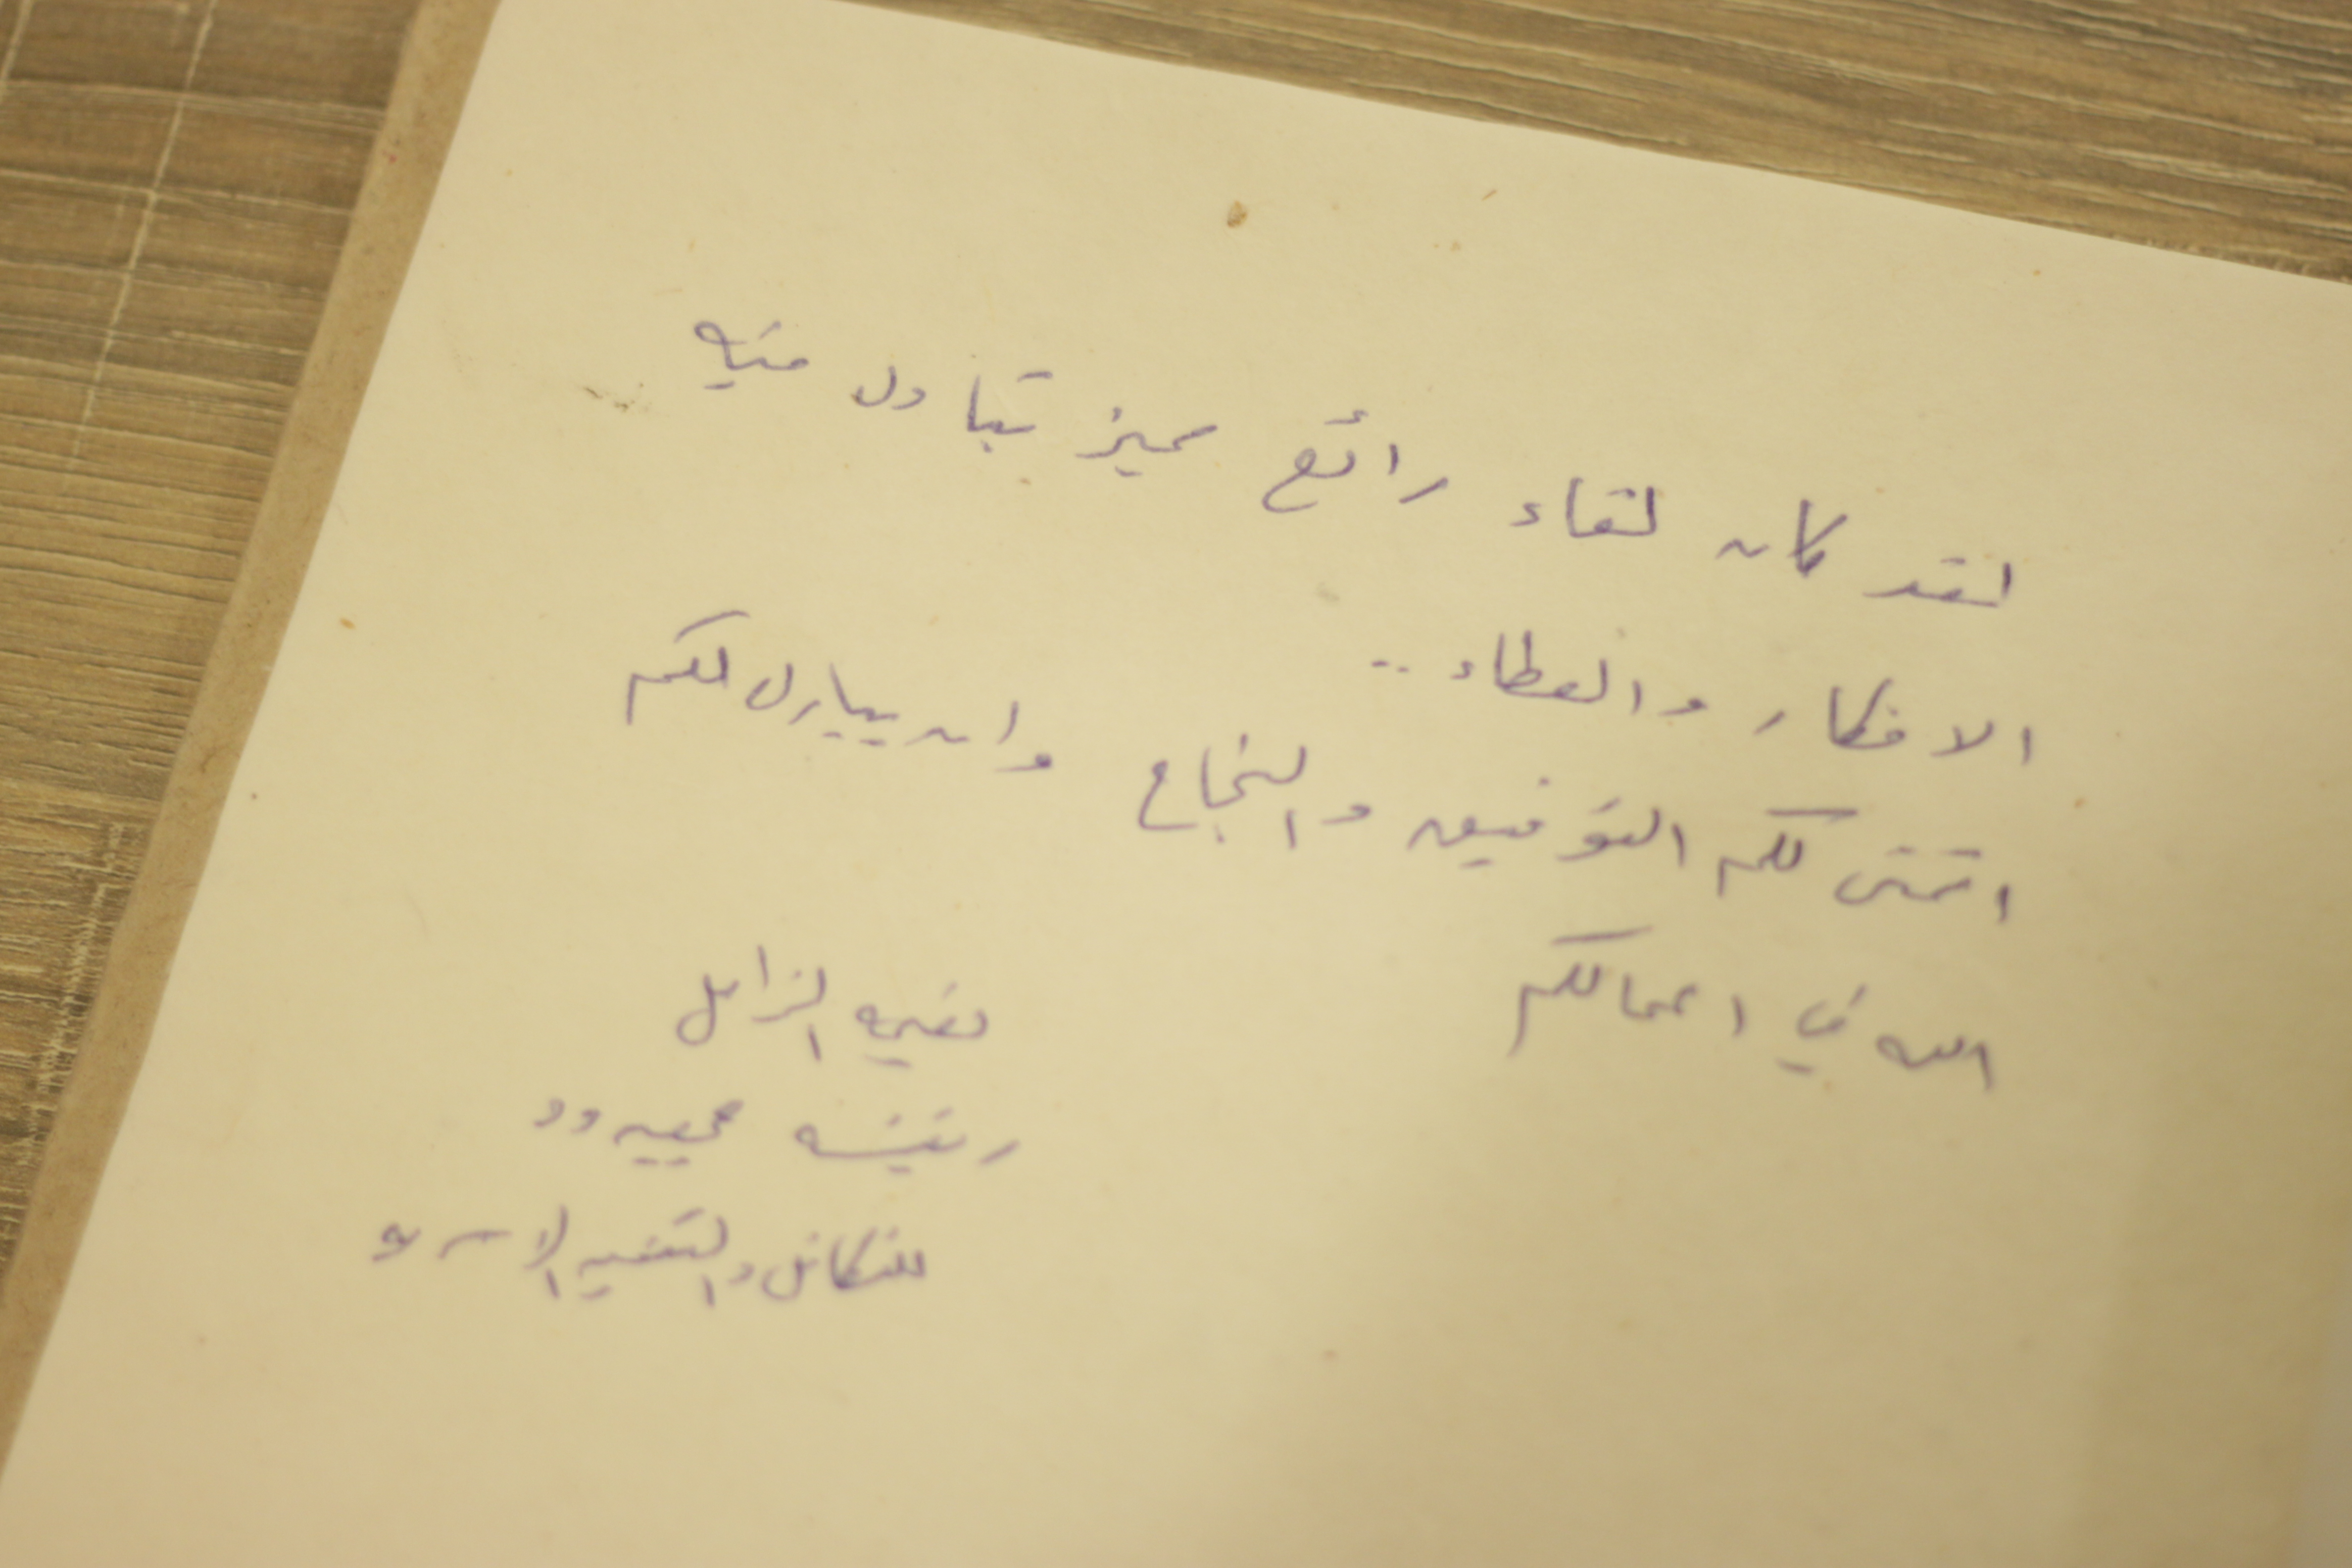 لقد كان لقاء رائع مميز تبادل فيه
الافكار والعطاء ..
اتمنى لكم التوفيق والنجاح وان يبارك لكم
الله في اعمالكم
نعيمه الزامل
رئيسه جمعيه ود
للتكافل والتنميه الاسريه